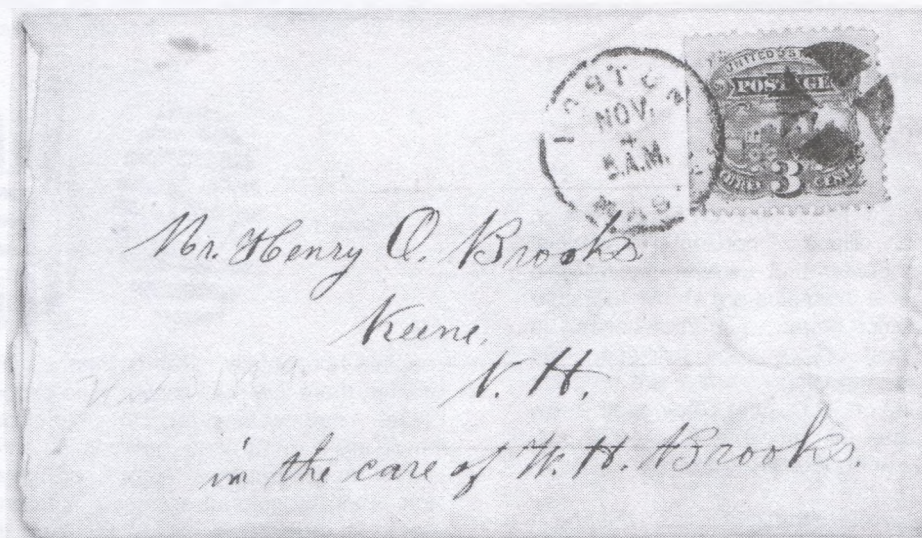 BOSTON
NOV.
4
MASS.
UNITED STATES
POSTAGE
THREE 3 CENTS
Mr. Henry O. Brooks
Keene,
N. H.
in the care of W. H. Brooks.